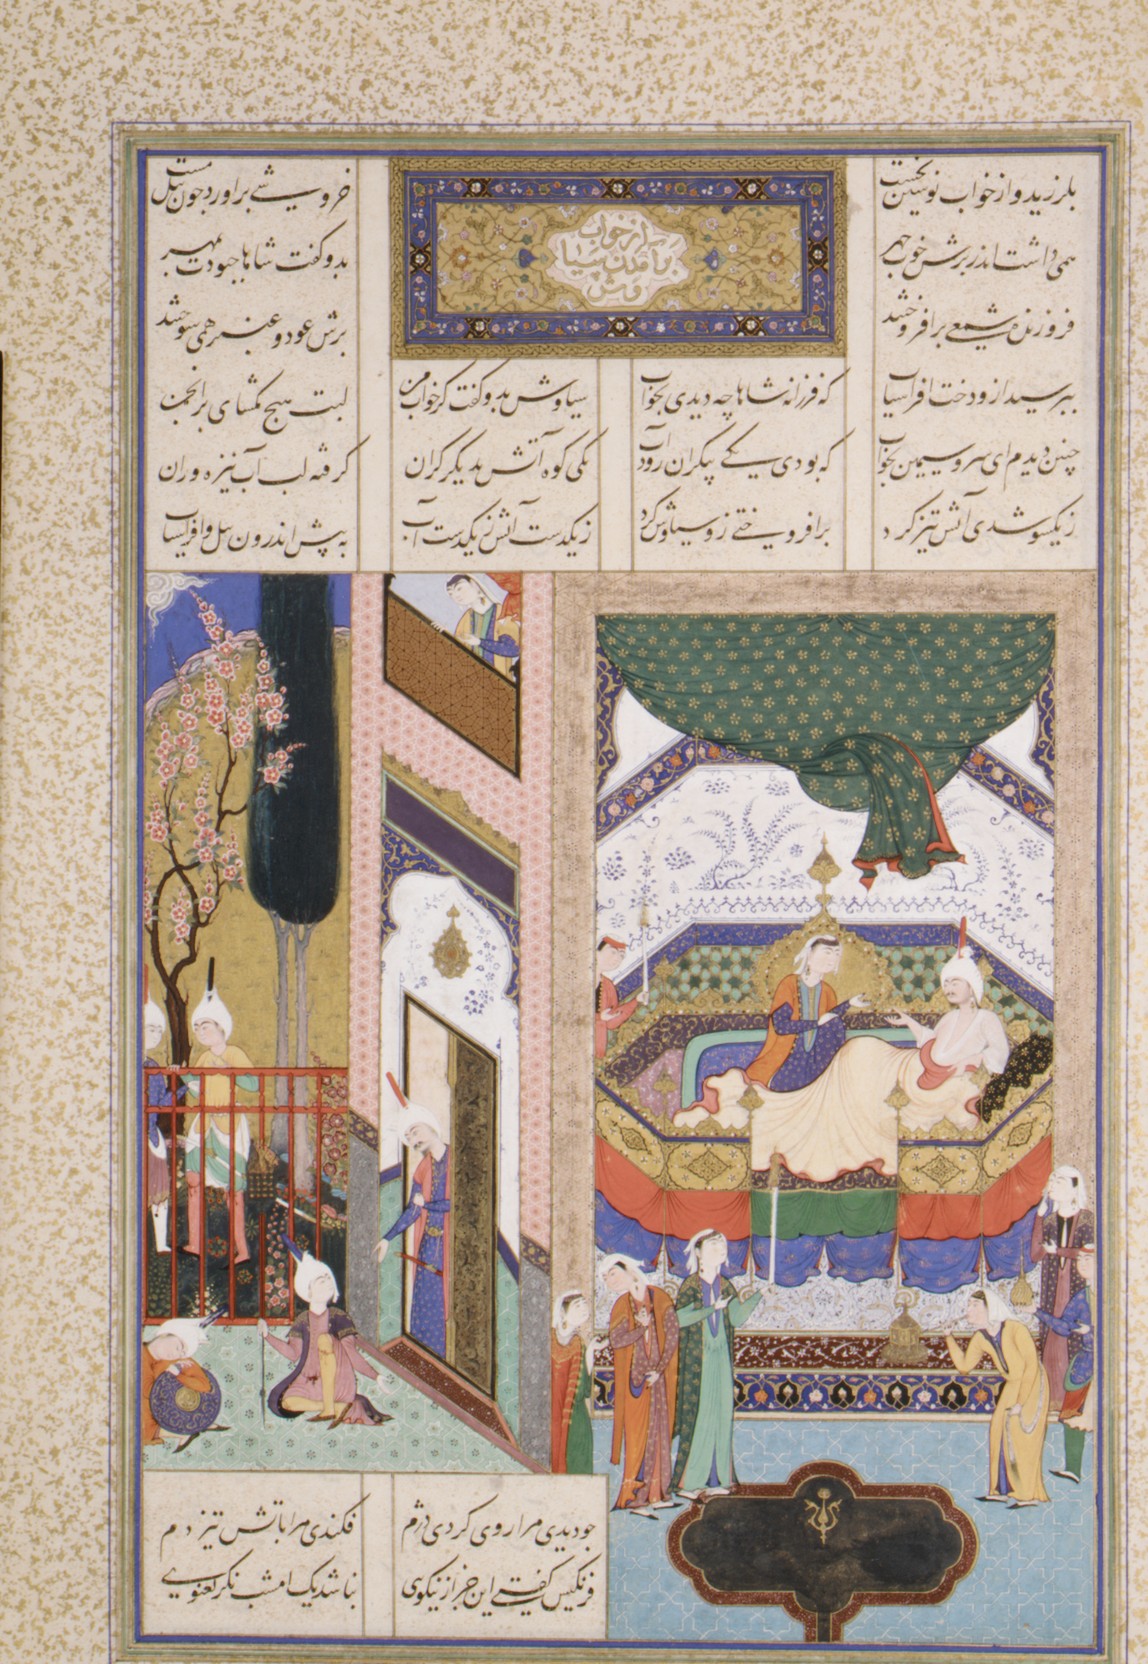 بلرزید و از خواب نوشین بجست خروشی براورد چون پیل مست
برآمدن سیاوش از خواب
همی داشت اندر برش خوب چهر بدو گفت شاها چبودت بمهر
فروزنده شمعی برافروختند برش عود و عنبر همی سوختند
بپرسید ازو دخت افراسیاب که فرزانه شاها چه دیدی بخواب سیاوش بدو گفت کز خواب من لبت هیچ مگشای بر انجمن
چنین دیدم ای سرو سیمین بخواب که بودی یکی بیکران رود آب یکی کوه آتش بدیگر کران گرفته لب آب نیزه وران
ز یکسو شدی آتش تیز گرد برافروختی زو سیاوش گرد ز یکدست آتش ز یکدست آب به پیش اندرون پیل و افراسیاب
چو دیدی مرا روی کردی دژم فکندی مرا باتش تیز دم
فرنگیس گفت این جز از نیکوی نباشد یک امشب نگر نغنوی